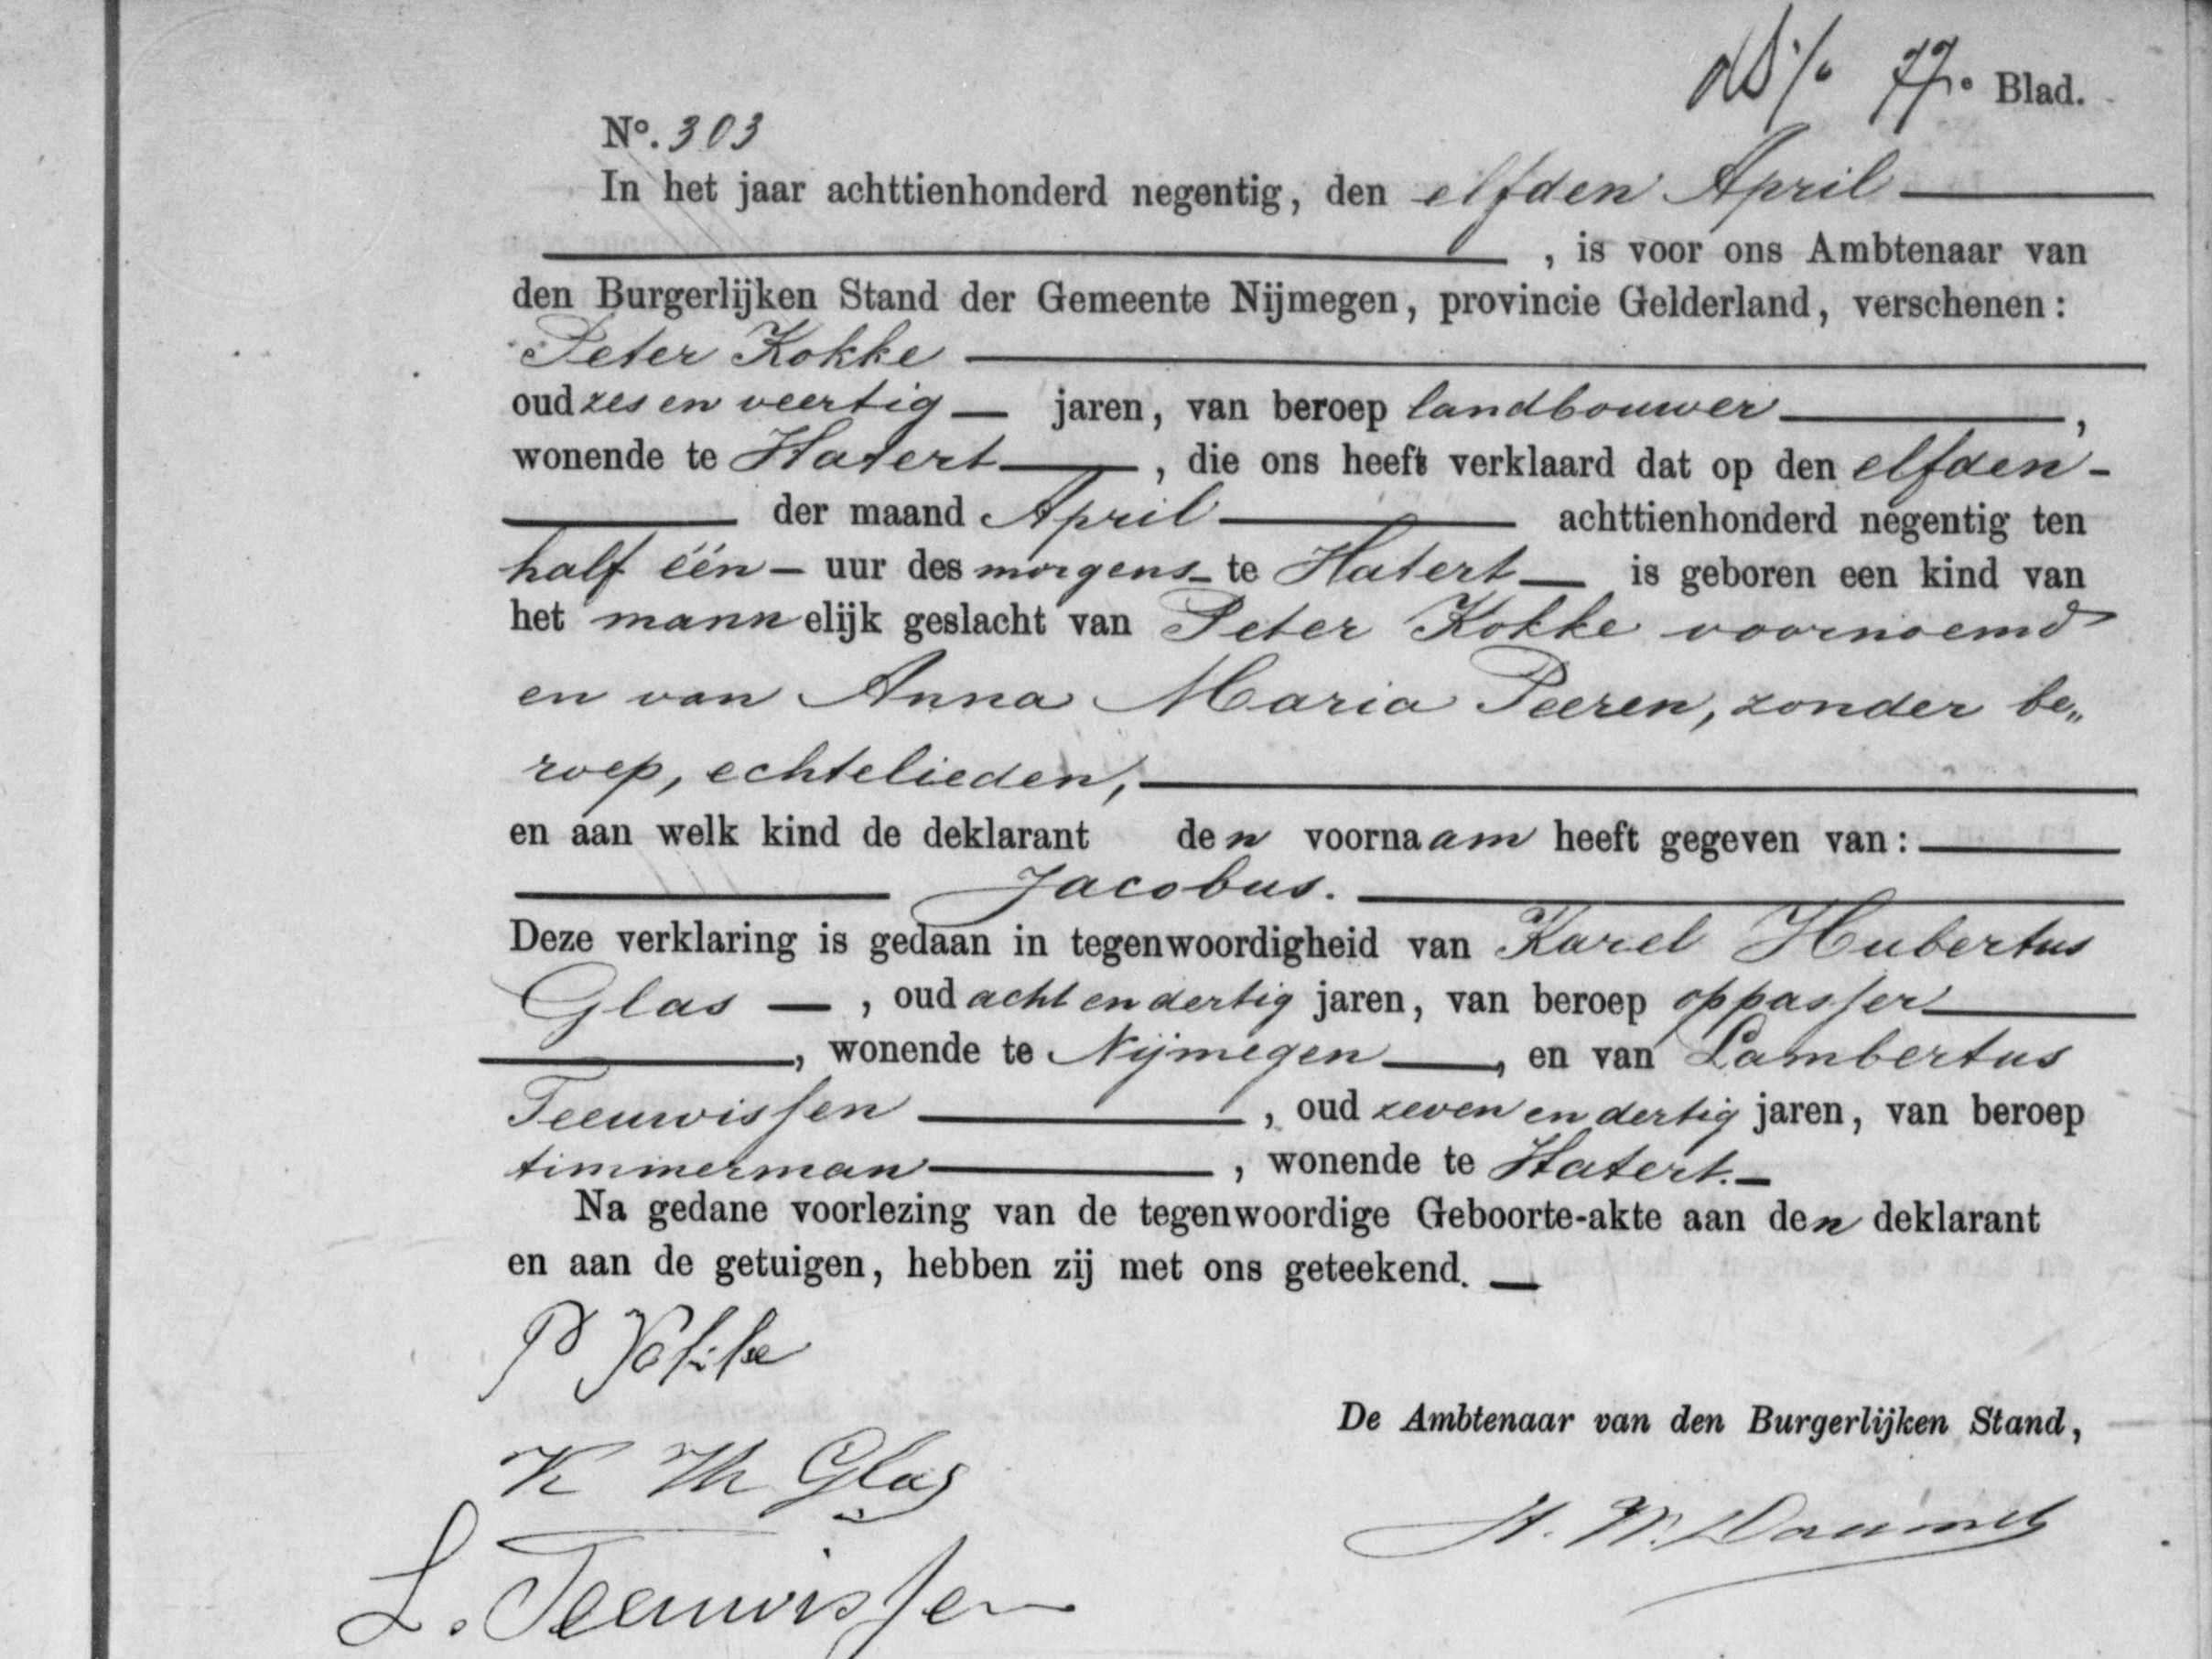 77. Blad.
No. 303
In het jaar achttienhonderd negentig, den elfden April
, is voor ons Ambtenaar van
den Burgerlijken Stand der Gemeente Nijmegen, provincie Gelderland, verschenen:
Peter Kokke
oud zes en veertig jaren, van beroep landbouwer,
wonende te Hatert, die ons heeft verklaard dat op den elfden
der maand April achttienhonderd negentig ten
half één uur des morgens te Hatert is geboren een kind van
het mannelijk geslacht van Peter Kokke voornoemd
en van Anna Maria Peeren, zonder be„
roep, echtelieden,
en aan welk kind de deklarant den voornaam heeft gegeven van:
Jacobus.
Deze verklaring is gedaan in tegenwoordigheid van Karel Hubertus
Glas, oud acht en dertig jaren, van beroep oppasser
, wonende te Nijmegen, en van Lambertus
Teeuwissen, oud zeven en dertig jaren, van beroep
timmerman, wonende te Hatert.
Na gedane voorlezing van de tegenwoordige Geboorte-akte aan den deklarant
en aan de getuigen, hebben zij met ons geteekend.
P Kokke
De Ambtenaar van den Burgerlijken Stand,
K Glas
L. Teeuwissen